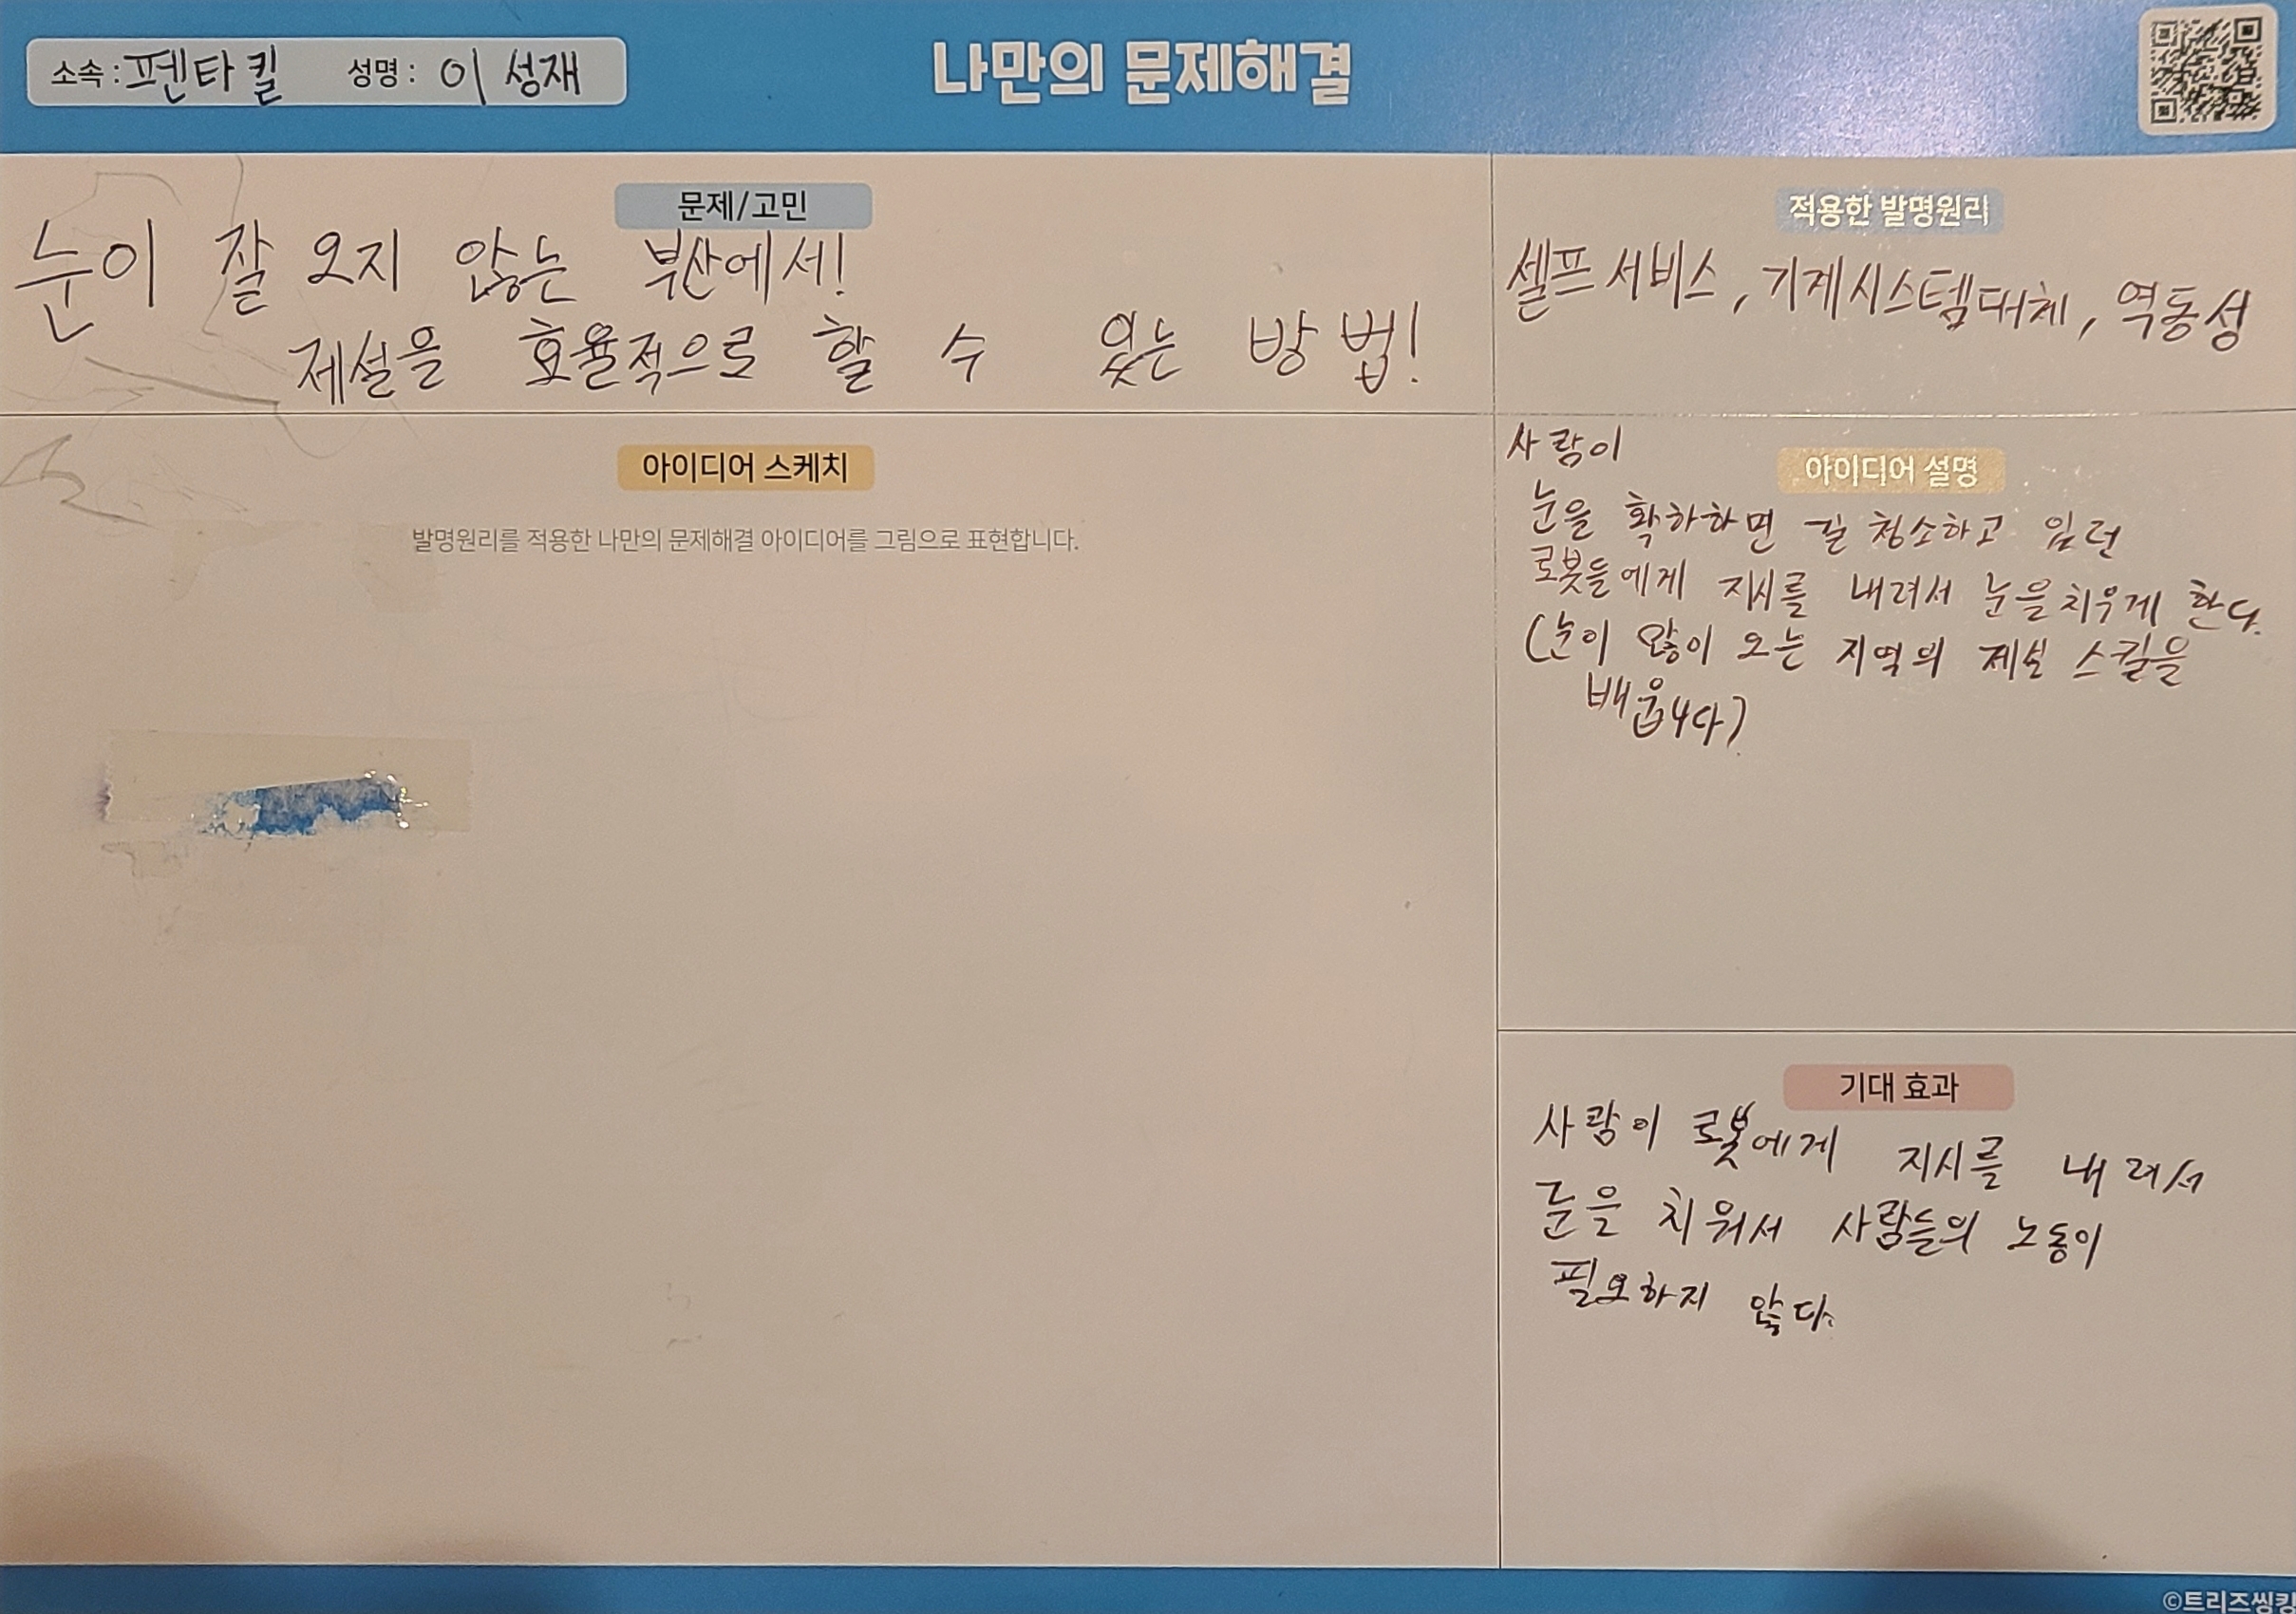 소속 : 펜타킬 성명 : 이성재
나만의 문제해결
문제/고민
눈이 잘 오지 않는 부산에서!
제설을 효율적으로 할 수 있는 방법!
적용한 발명원리
셀프서비스, 기계시스템대체, 역동성
아이디어 스케치
발명원리를 적용한 나만의 문제해결 아이디어를 그림으로 표현합니다.
아이디어 설명
사람이
눈을 확하하면 길 청소하고 있던
로봇들에게 지시를 내려서 눈을치우게 한다.
(눈이 많이 오는 지역의 제설 스킬을
배웁니다)
기대 효과
사람이 로봇에게 지시를 내려서
눈을 치워서 사람들의 노동이
필요하지 않다.
©트리즈씽킹